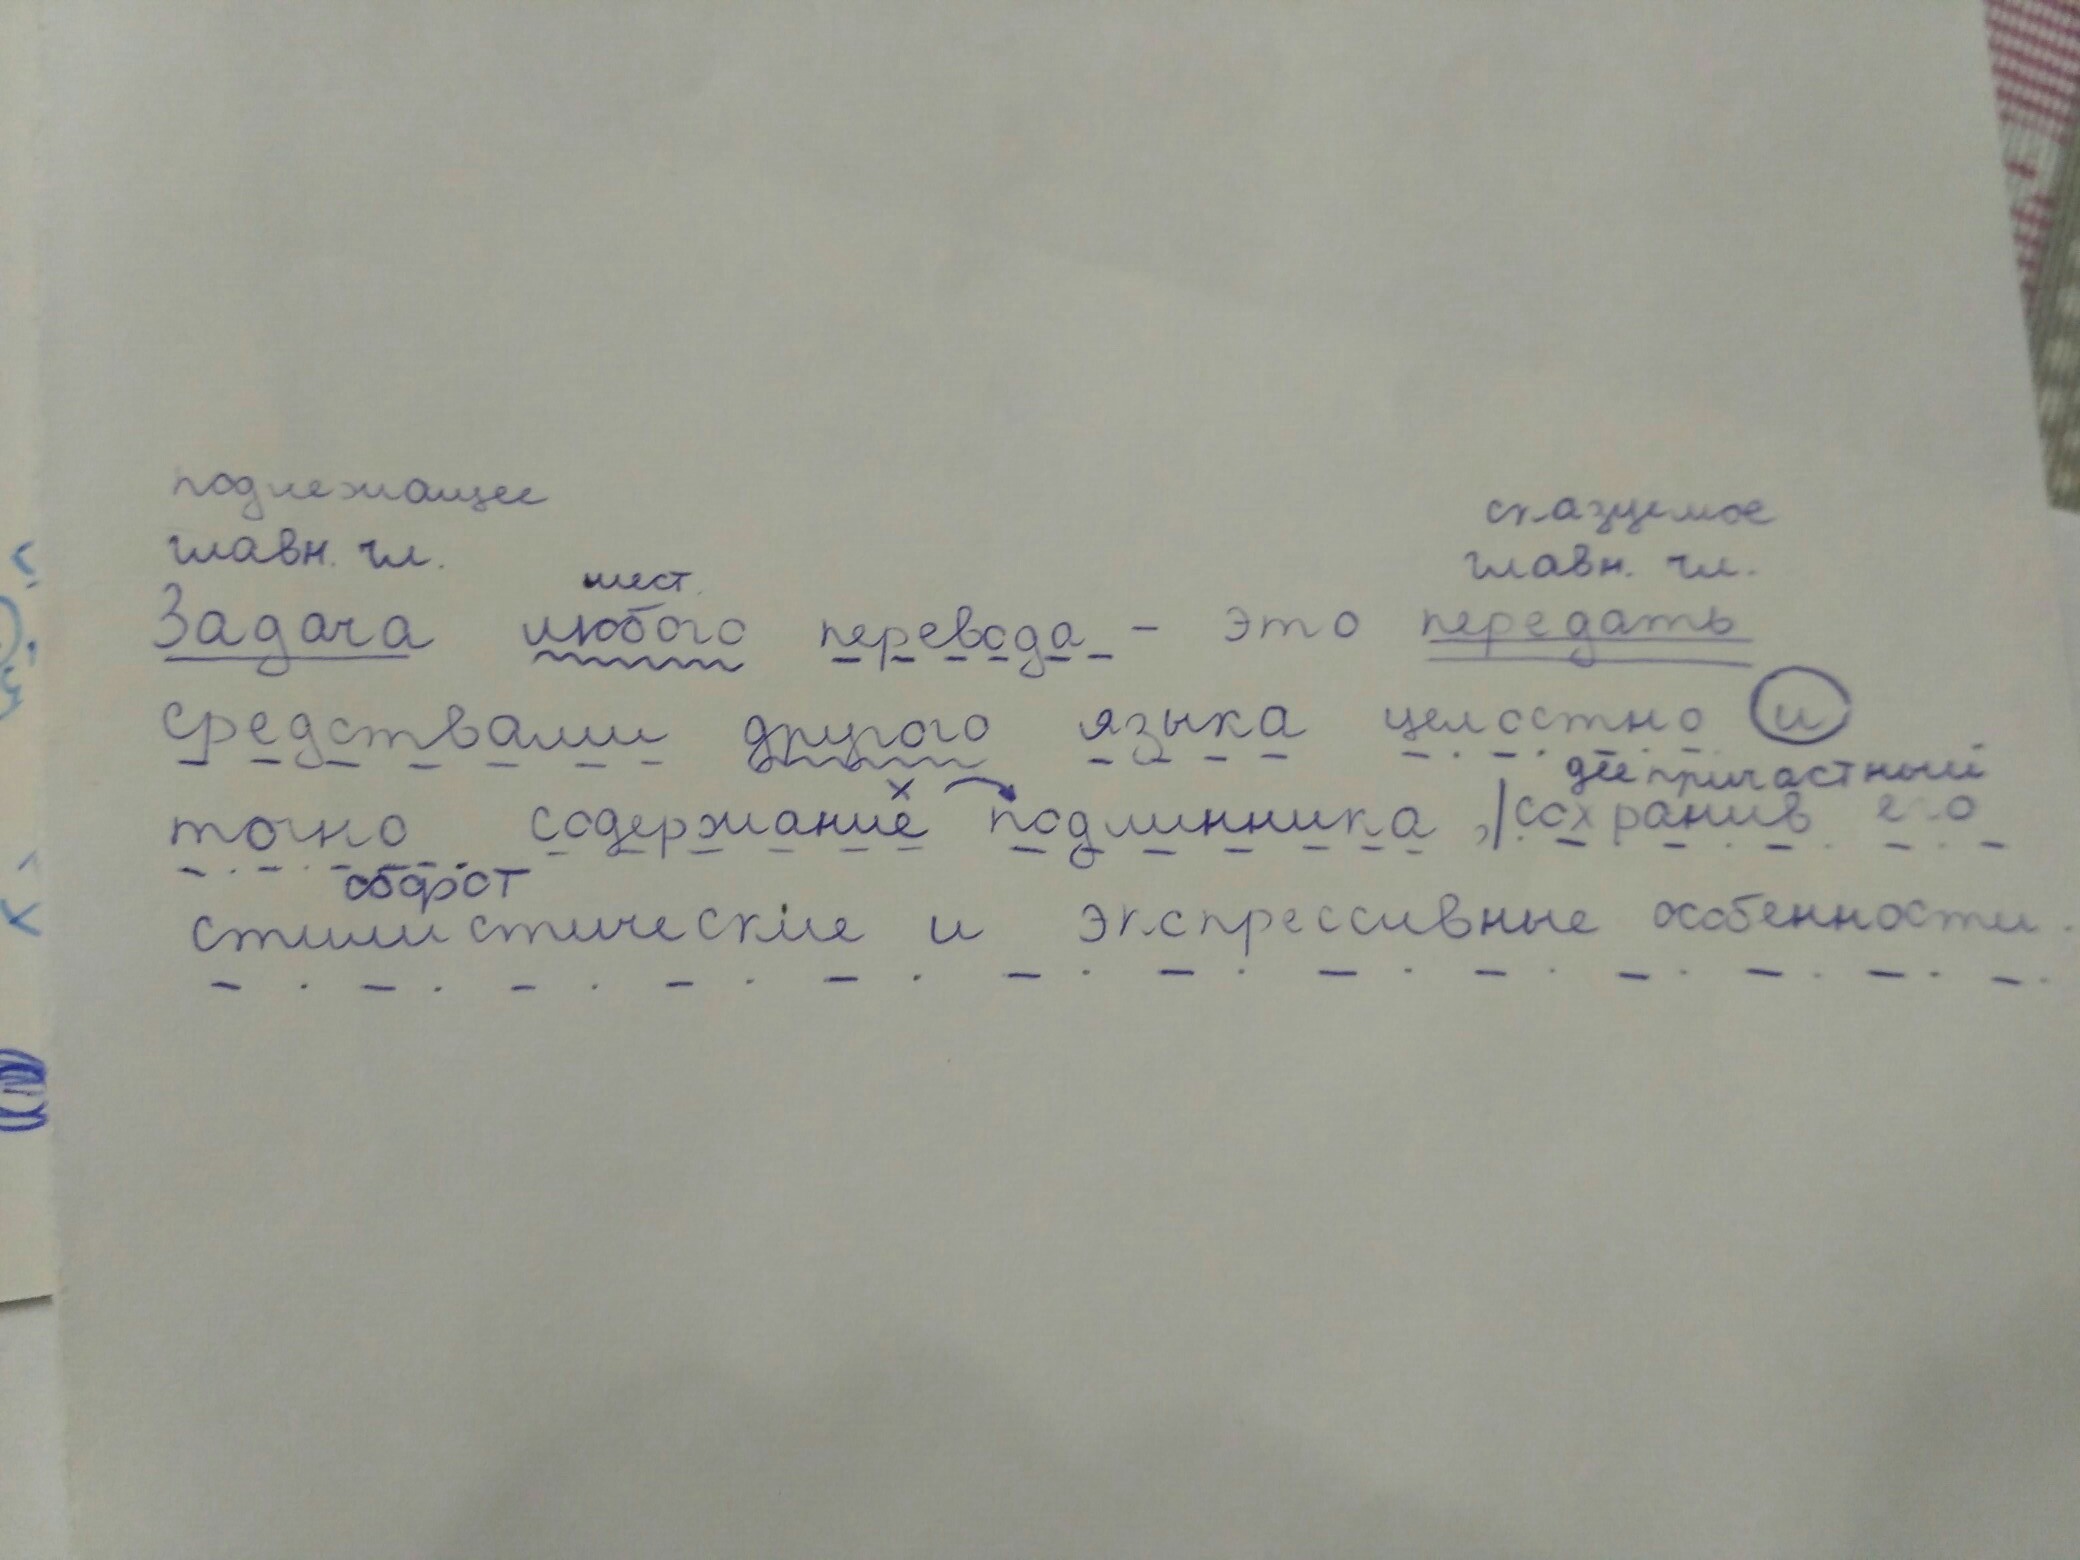 подлежащее
сказуемое
главн. чл.
главн. чл.
мест.
Задача любого перевода - это передать
средствами другого языка целостно и
деепричастный
точно содержание подлинника, сохранив его
оборот
стилистические и экспрессивные особенности.